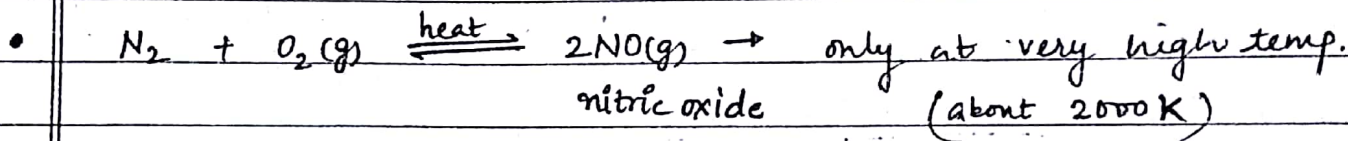 • N₂ + O₂ (g) ⇌ heat 2NO(g) → only at very high temp.
nitric oxide (about 2000 K)